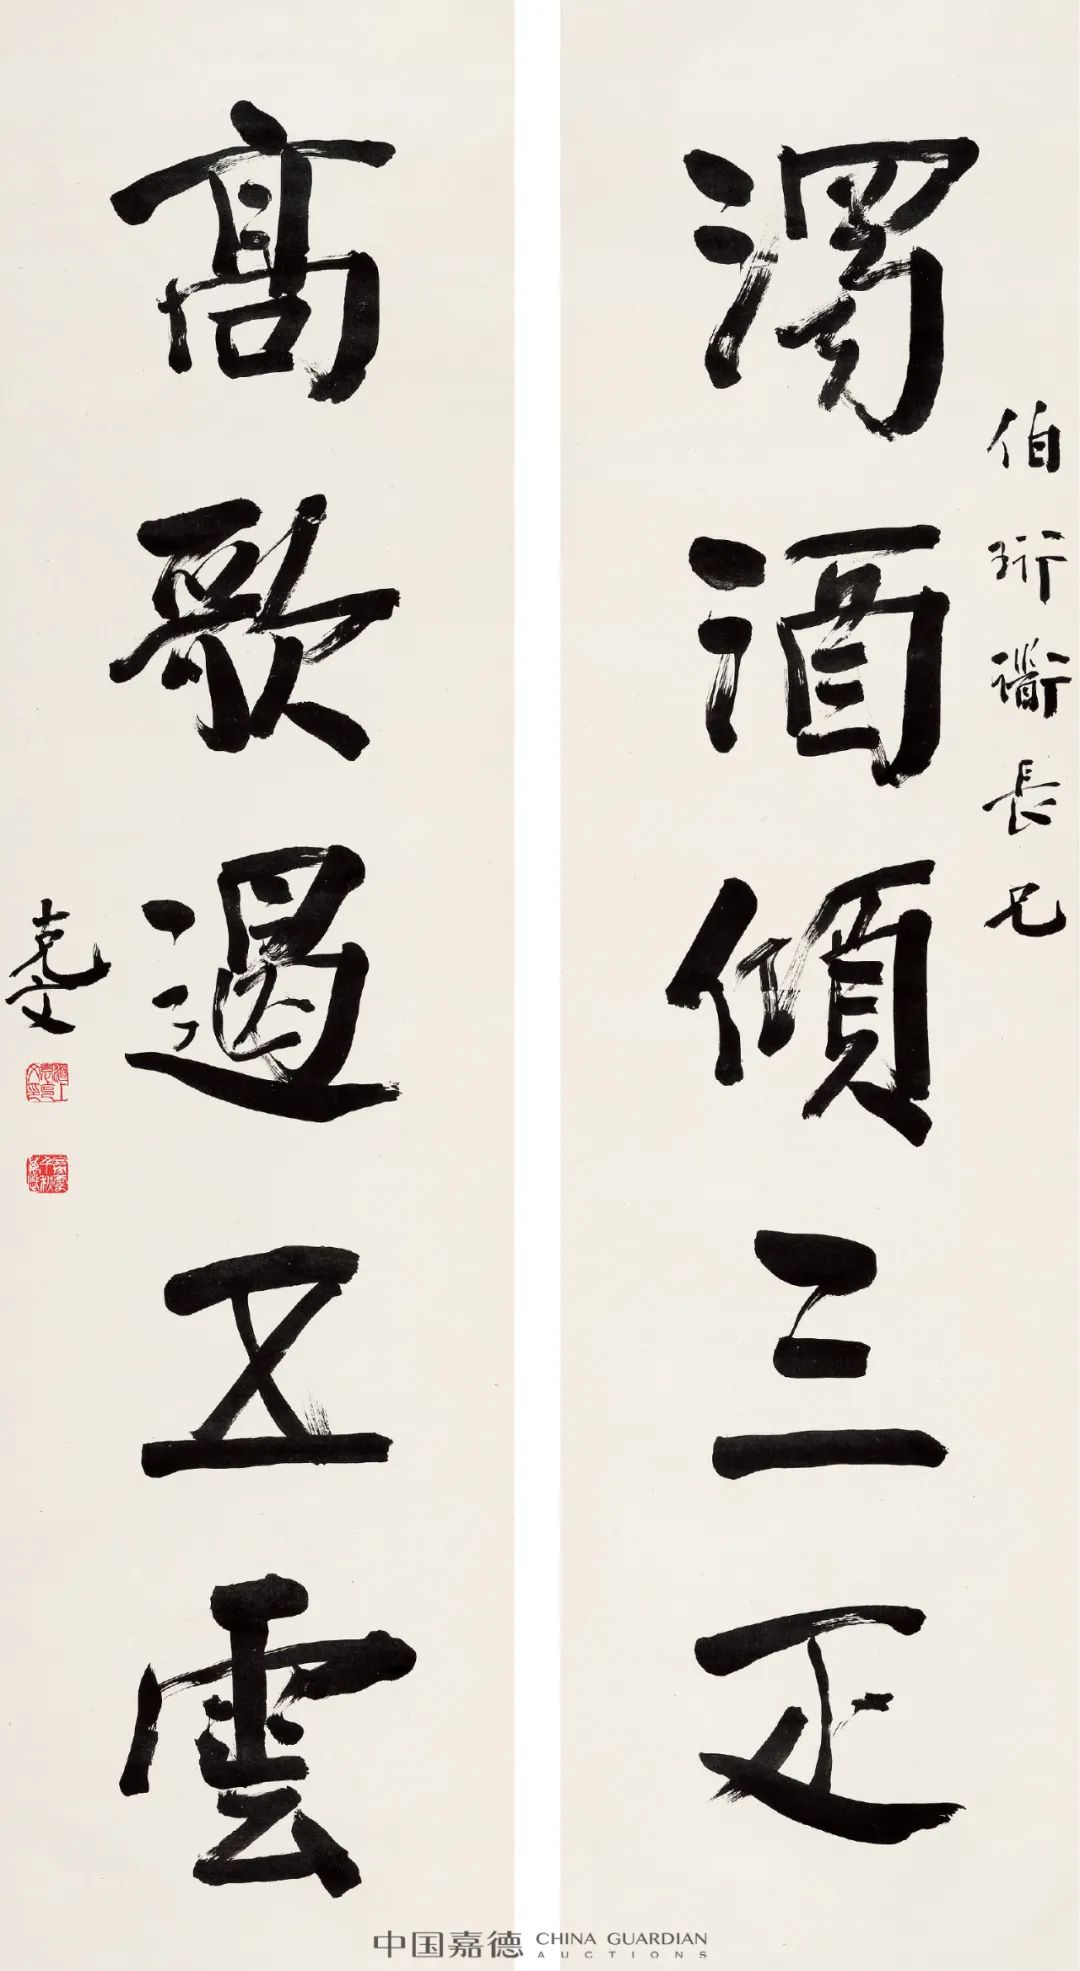 伯珩衟長兄
濁酒傾三疋
高歌遏五雲
克文
中国嘉德 CHINA GUARDIAN
AUCTIONS